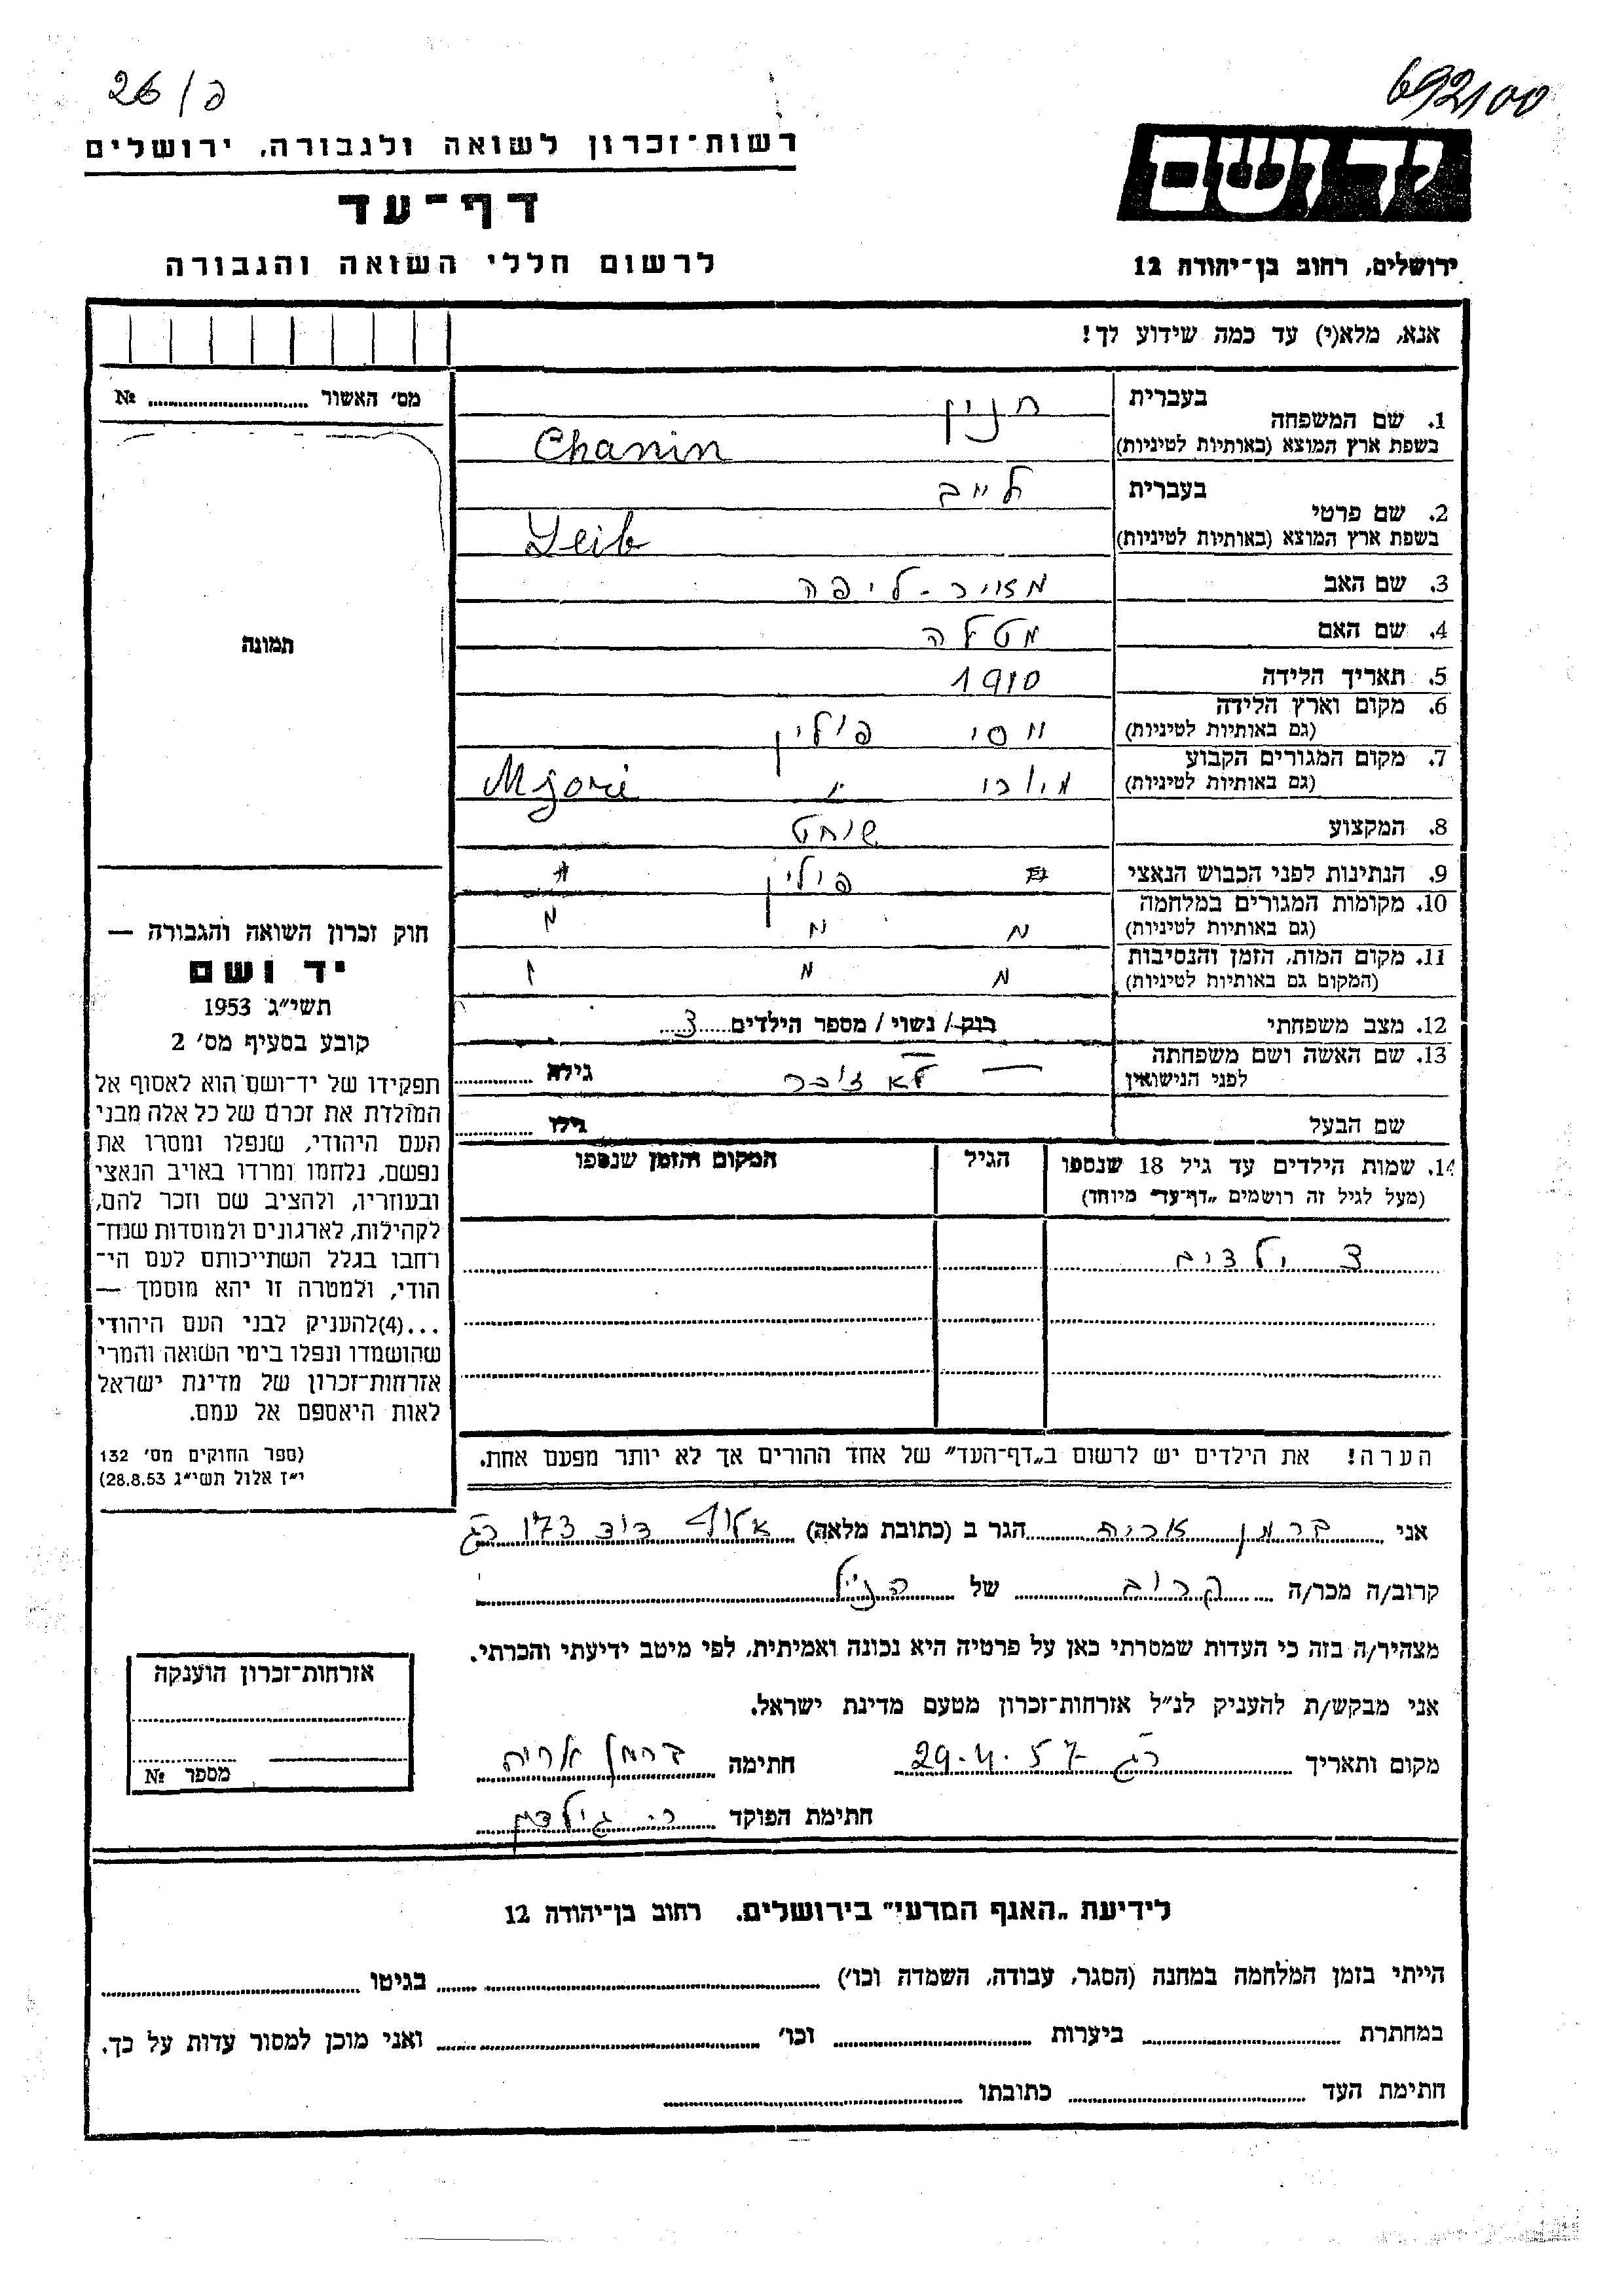 26/פ
692100
רשות־זכרון לשואה ולגבורה, ירושלים
דף־עד
לרשום חללי השואה והגבורה
יד ושם
ירושלים, רחוב בן־יהודה 12
אנא, מלא(י) עד כמה שידוע לך!
מס׳ האשור № 
1. שם המשפחה בעברית חנין
בשפת ארץ המוצא (באותיות לטיניות) Chanin
2. שם פרטי בעברית לייב
בשפת ארץ המוצא (באותיות לטיניות) Leib
3. שם האב מאיר - ליפה
4. שם האם מטלה
5. תאריך הלידה 1910
6. מקום וארץ הלידה פולין
(גם באותיות לטיניות)
7. מקום המגורים הקבוע Mjori
(גם באותיות לטיניות)
8. המקצוע שוחט
9. הנתינות לפני הכבוש הנאצי פולין
10. מקומות המגורים במלחמה
(גם באותיות לטיניות)
11. מקום המות, הזמן והנסיבות
(המקום גם באותיות לטיניות)
12. מצב משפחתי רוק / נשוי / מספר הילדים 3
13. שם האשה ושם משפחתה לפני הנישואין לא זוכר גילה
שם הבעל גילו
14. שמות הילדים עד גיל 18 שנספו הגיל המקום והזמן שנספו
(מעל לגיל זה רושמים „דף־עד״ מיוחד)
3 ילדים
הערה! את הילדים יש לרשום ב„דף־העד״ של אחד ההורים אך לא יותר מפעם אחת.
תמונה
חוק זכרון השואה והגבורה —
יד ושם
תשי״ג 1953
קובע בסעיף מס׳ 2
תפקידו של יד־ושם הוא לאסוף אל
המולדת את זכרם של כל אלה מבני
העם היהודי, שנפלו ומסרו את
נפשם, נלחמו ומרדו באויב הנאצי
ובעוזריו, ולהציב שם וזכר להם,
לקהילות, לארגונים ולמוסדות שנח־
רחבו בגלל השתייכותם לעם הי־
הודי, ולמטרה זו יהא מוסמך —
...(4)להעניק לבני העם היהודי
שהושמדו ונפלו בימי השואה והמרי
אזרחות־זכרון של מדינת ישראל
לאות היאספם אל עמם.
(ספר החוקים מס׳ 132
י״ז אלול תשי״ג 28.8.53)
אני ברמן אריה הגר ב (כתובת מלאה) אלוף דוד 173 רג
קרוב/ה מכר/ה קרוב של הנ״ל
מצהיר/ה בזה כי העדות שמסרתי כאן על פרטיה היא נכונה ואמיתית, לפי מיטב ידיעתי והכרתי.
אני מבקש/ת להעניק לנ״ל אזרחות־זכרון מטעם מדינת ישראל.
מקום ותאריך רג 29.4.57 חתימה ברמן אריה
חתימת הפוקד
אזרחות־זכרון הוענקה
מספר №
לידיעת „האגף המדעי״ בירושלים. רחוב בן־יהודה 12
הייתי בזמן המלחמה במחנה (הסגר, עבודה, השמדה וכו׳) בגיטו
במחתרת ביערות וכו׳ ואני מוכן למסור עדות על כך.
חתימת העד כתובתו